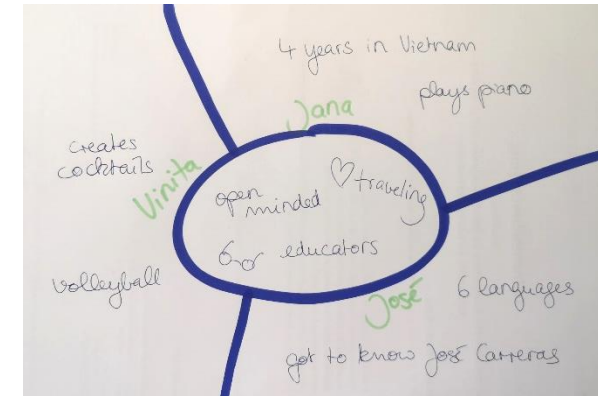 4 years in Vietnam
plays piano
Jana
creates
cocktails
Vinita
open
minded
♡ traveling
educators
volleyball
José
6 languages
got to know José Carreras